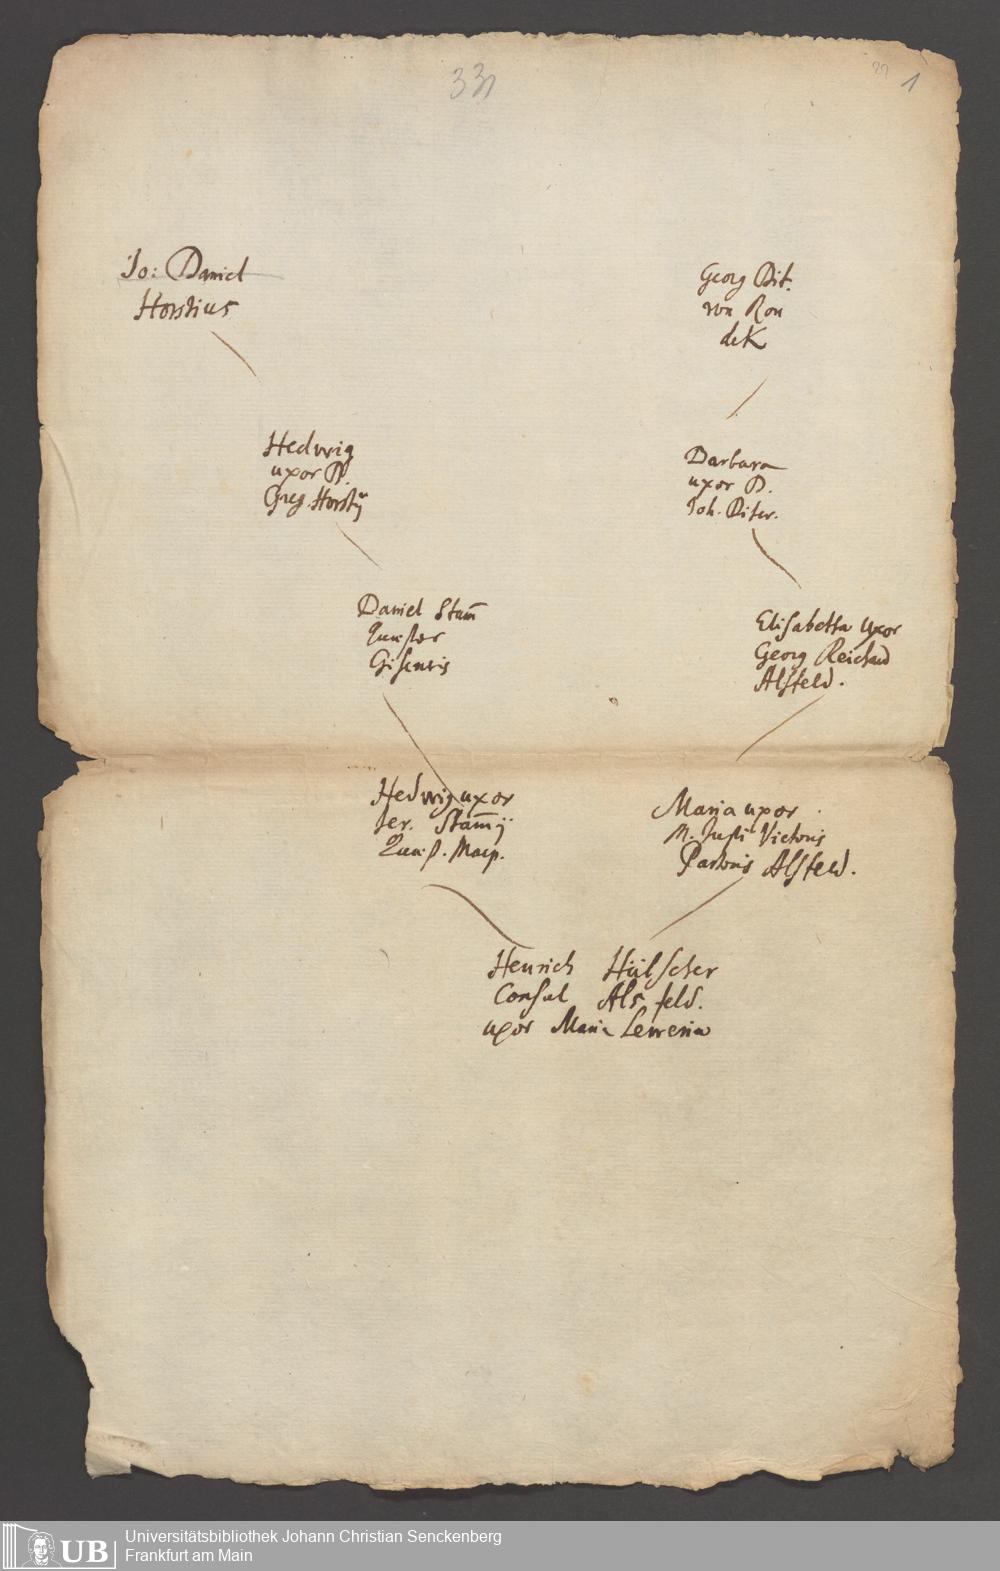 331
29 1
Jo: Daniel
Horstius
Georg Dit.
von Ron
dek
Hedwig
uxor D.
Greg. Horstij
Barbara
uxor D.
Joh. Diter.
Daniel Stam
Gisensis
Elisabetha uxor
Georg Reichard
Alsfeld.
Hedwig uxor
Jer. Stamij
Marp.
Maria uxor
M. Justi Vietoris
Pastoris Alsfeld.
Henrich Hülscher
Consul Alsfeld.
uxor Maria
UB
Universitätsbibliothek Johann Christian Senckenberg
Frankfurt am Main